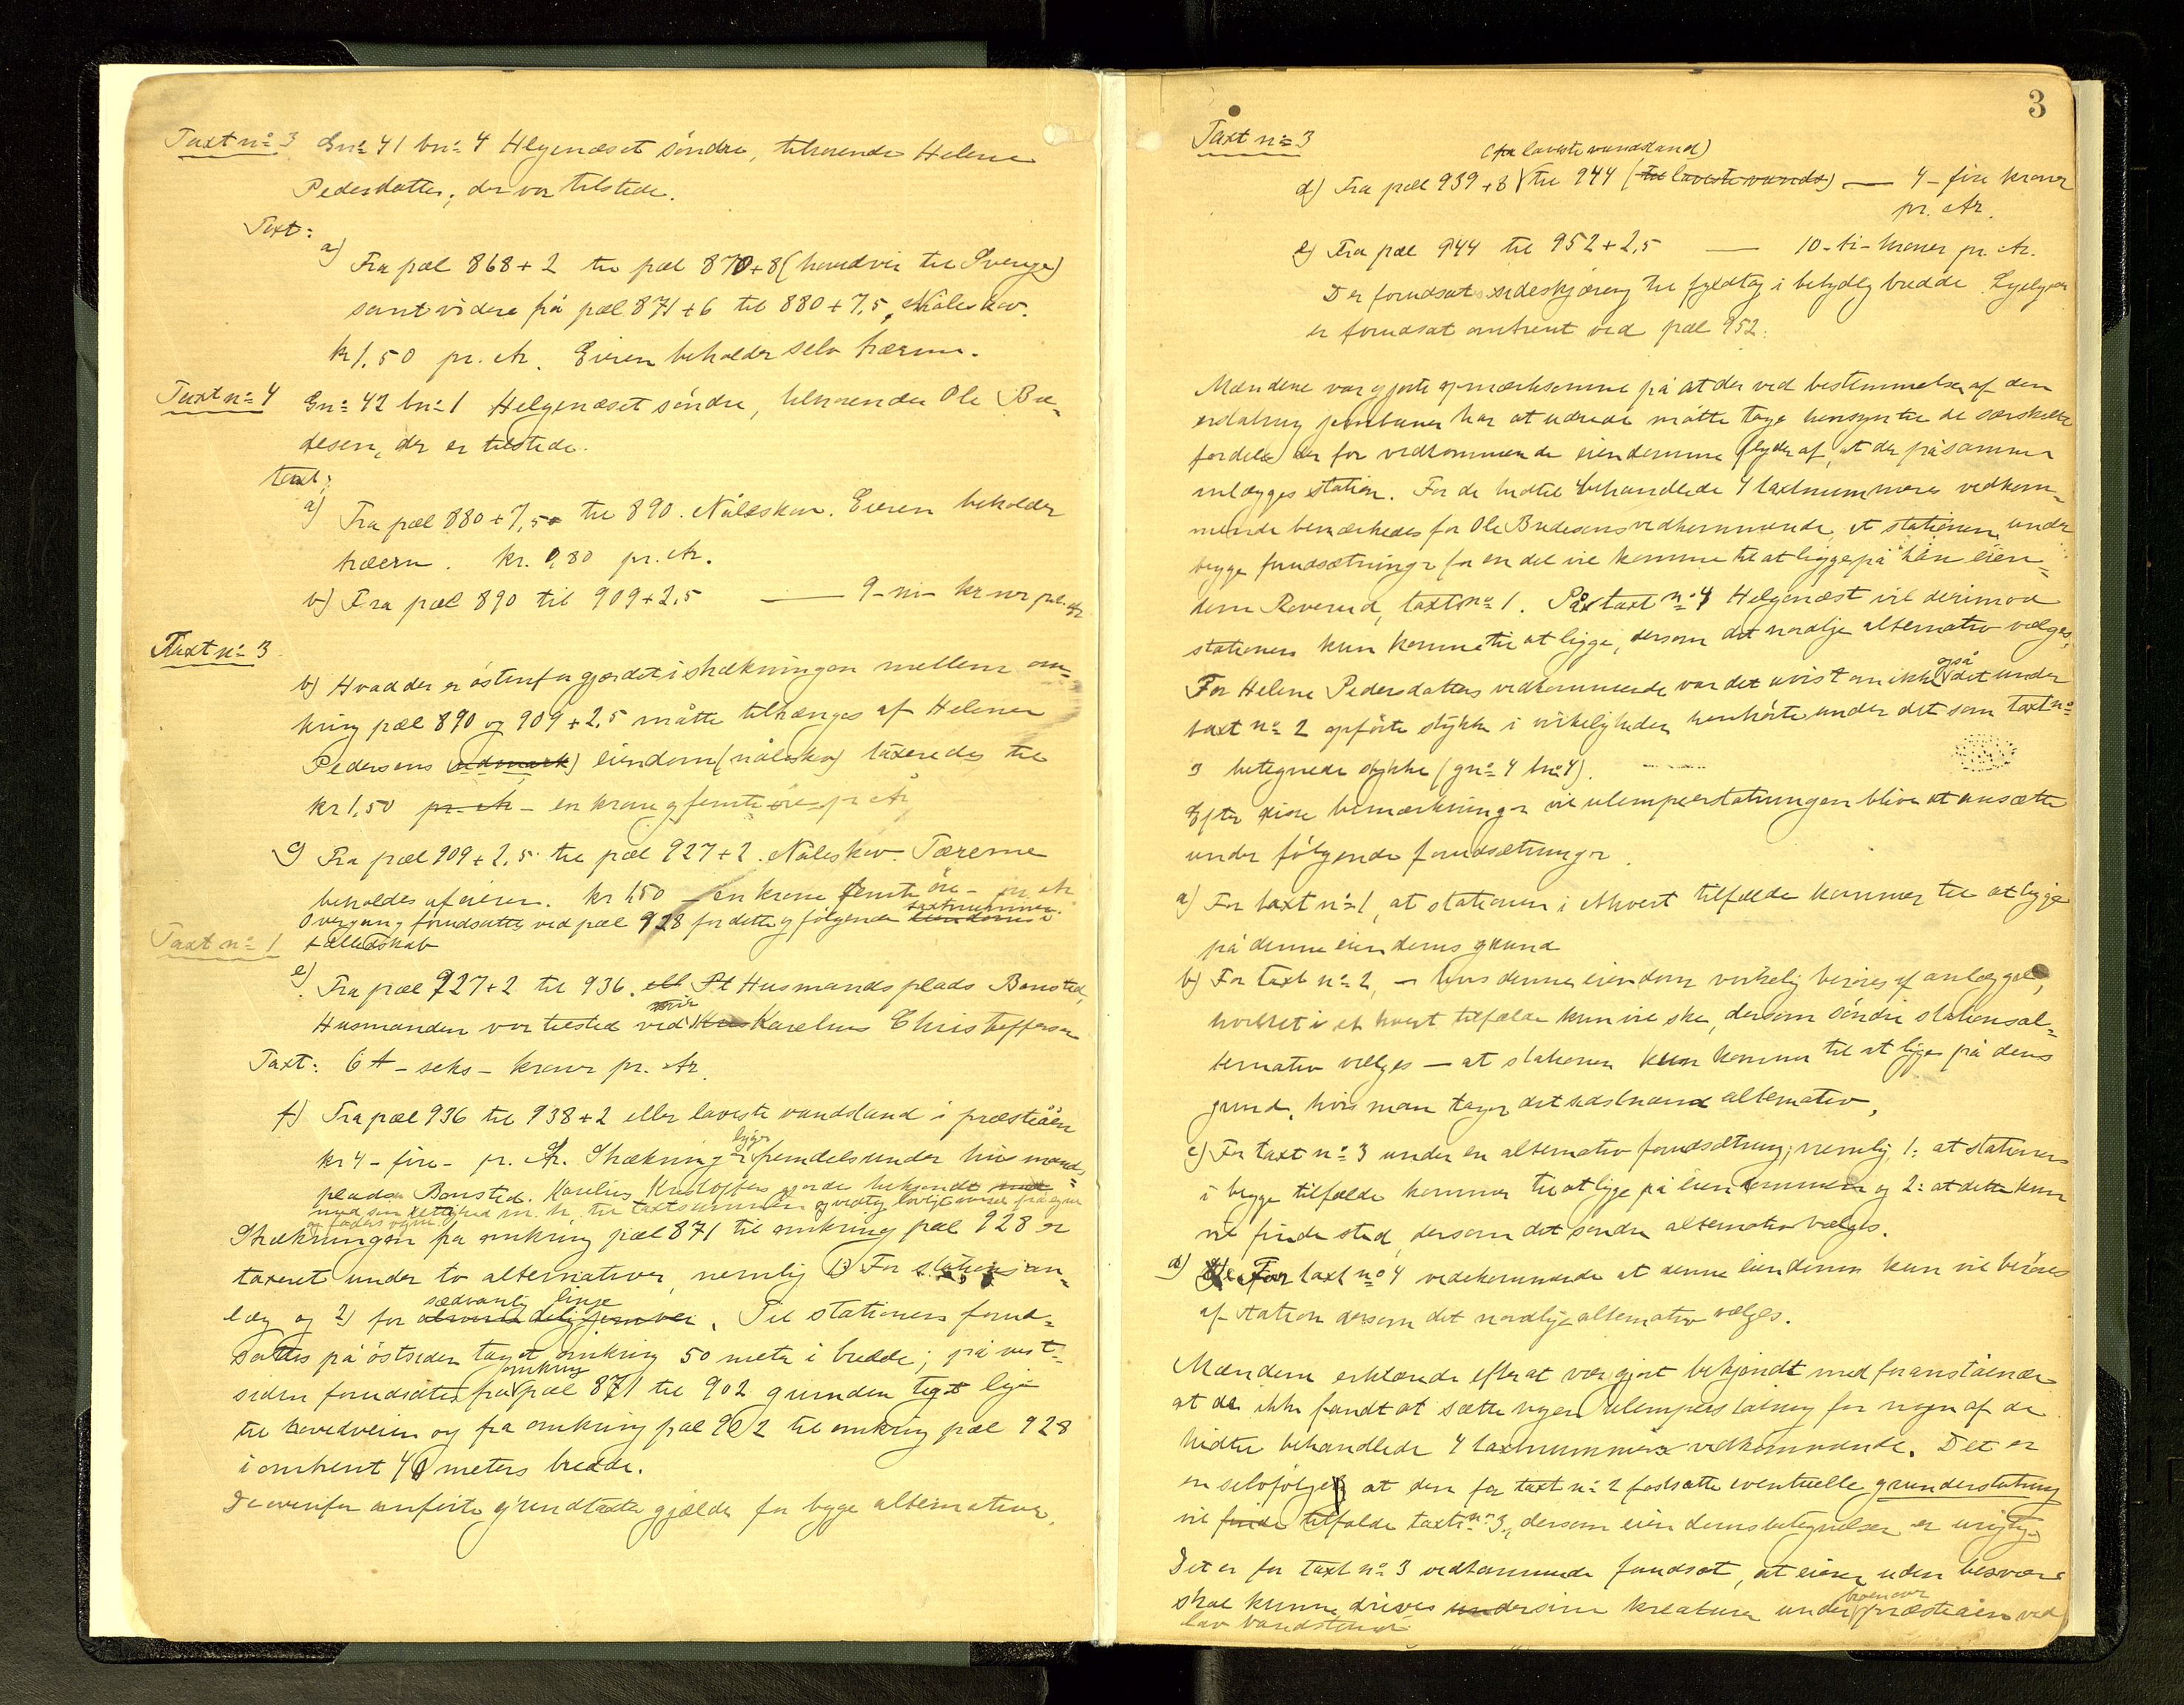 Taxt no 3 Gno 41 bno 4 Helgenæset söndre, tilhörende Helene
Pedersdatter, der var tilstede.
Taxt:
a) Fra pæl 868+2 til pæl 870+8 (hovedvei til Sverige)
samt videre fra pæl 871+6 til 880+7,5, Nåleskov.
kr 1,50 pr. Ar. Eieren beholder selv træerne.
Taxt no 4 Gno 42 bno 1 Helgenæset söndre, tilhörende Ole Bu-
desen, der er tilstede.
taxt:
a) Fra pæl 880+7,5 til 890. Nåleskov. Eieren beholder
træern. kr. 0,80 pr. Ar.
b) Fra pæl 890 til 909+2,5 — 9-ni- kroner pr. Ar
Taxt no 3
b) Hvad der er östenfor gjerdet i strækningen mellem om-
kring pæl 890 og 909+2,5 måtte tilhænges af Helene
Pedersens (udmark) eiendom (nåleskov) taxeredes til
kr 1,50 pr. Ar - en krone og femti öre pr Ar
c) Fra pæl 909+2,5 til pæl 927+2. Nåleskov. Tæerne
beholdes af eieren. kr 1,50 - en krone femti öre - pr Ar
Overgang forudsættes ved pæl 928 for dette og fölgende taxtnummer eiendom i
fælledskab
Taxt no 1
e) Fra pæl 927+2 til 936. Husmandsplads Bonsted,
Husmanden var tilsted ved Karelius Christoffersen
Taxt: 6 - seks - kroner pr. Ar.
f) Fra pæl 936 til 938+2 eller laveste vandstand i præstiåen
kr 4 - fire - pr. Ar. Strækningen ligger fremdeles under husmands-
pladsen Bonsted. Karelius Kristoffers gjorde bekjendt
med sin rettighed m. h. til taxtsummen og vedtog lovligt varsel på egne
og faders vegne.
Strækningen fra omkring pæl 871 til omkring pæl 928 er
taxeret under to alternativer, nemlig 1) For stationsan-
læg og 2) for sædvanlig linje. Til stationens forud-
sattes på östsiden taget omkring 50 meter i bredde; på vest-
siden forudsattes fra omkring pæl 871 til 902 grunden taget lige
til hovedveien og fra omkring pæl 902 til omkring pæl 928
i omtrent 40 meters bredde.
De ovenfor anförte grundtaxter gjælder for begge alternativer.
3
Taxt no 3
(fra laveste vandstand)
d) Fra pæl 939+8 til 944 (til laveste vands) — 4-fire kroner
pr. Ar.
e) Fra pæl 944 til 952+2,5 — 10-ti-kroner pr. Ar.
Der forudsat sideskjæring til fyldtag i betydelig bredde.
er forudsat omtrent ved pæl 952.
Mændene var gjorte opmærksomme på at der ved bestemmelse af den
erstatning jernbanen har at udrede måtte tage hensyn til de særskilte
fordele der for vedkommende eiendomme flyder af, at der på samme
anlægges station. For de hidtil behandlede 4 taxtnummeres vedkom-
mende bemærkedes for Ole Budesens vedkommende, at stationen under
begge forudsætninger for en del vil komme til at ligge på hans eien-
dom Reverud, taxt no 1. På taxt no 4 Helgenæst vil derimod
stationen kun komme til at ligge, dersom det nordlige alternativ vælges.
For Helene Pedersdatters vedkommende var det uvist om ikke også det under
taxt no 2 opförte stykke i virkeligheden henhörte under det som taxt no
3 betegnede stykke (gno 4 bno 4).
Efter disse bemærkninger vil ulempeerstatningen blive at ansætte
under fölgende forudsætninger.
a) For taxt no 1, at stationen i ethvert tilfælde kommer til at ligge
på denne eiendoms grund
b) For taxt no 2, - hvis denne eiendom virkelig beröres af anlægget,
hvilket i et hvert tilfælde kun vil ske, dersom söndre stationsal-
ternativ vælges — at stationen kun kommer til at ligge på dens
grund, hvis man tager det sidstnævnt alternativ,
c) For taxt no 3 under en alternativ forudsætning; nemlig 1: at stationen
i begge tilfælde kommer til at ligge på eiendommen og 2: at dette kun
vil finde sted, dersom det söndre alternativ vælges.
d) For taxt no 4 vedkommende at denne eiendom kun vil beröres
af station dersom det nordlige alternativ vælges.
Mændene erklærede efter at vær gjort bekjendt med foranstående
at de ikke fandt at sætte nogen ulempeerstatning for nogen af de
hidtil behandlede 4 taxtnummeres vedkommende. Det er
en selvfölge at den for taxt no 2 fastsatte eventuelle grunderstatning
vil finde tilfalde taxt no 3, dersom eiendomsbetegnelsen er urigtig.
Det er for taxt no 3 vedkommende forudsat, at eieren uden besvær
skal kunne drives undersine kreaturer under broen over præstiåen ved
lav vandstand.